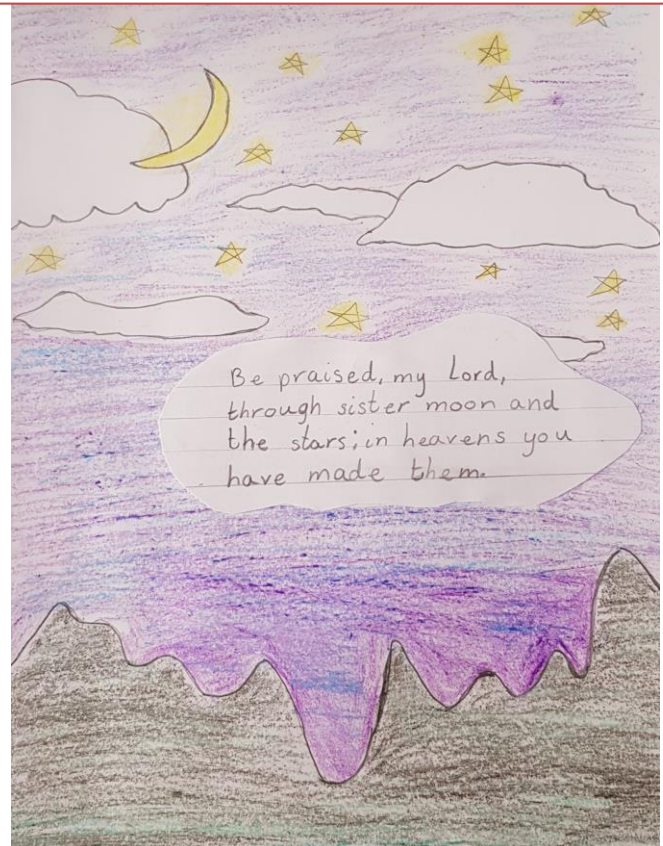 Be praised, my Lord,
through sister moon and
the stars; in heavens you
have made them.